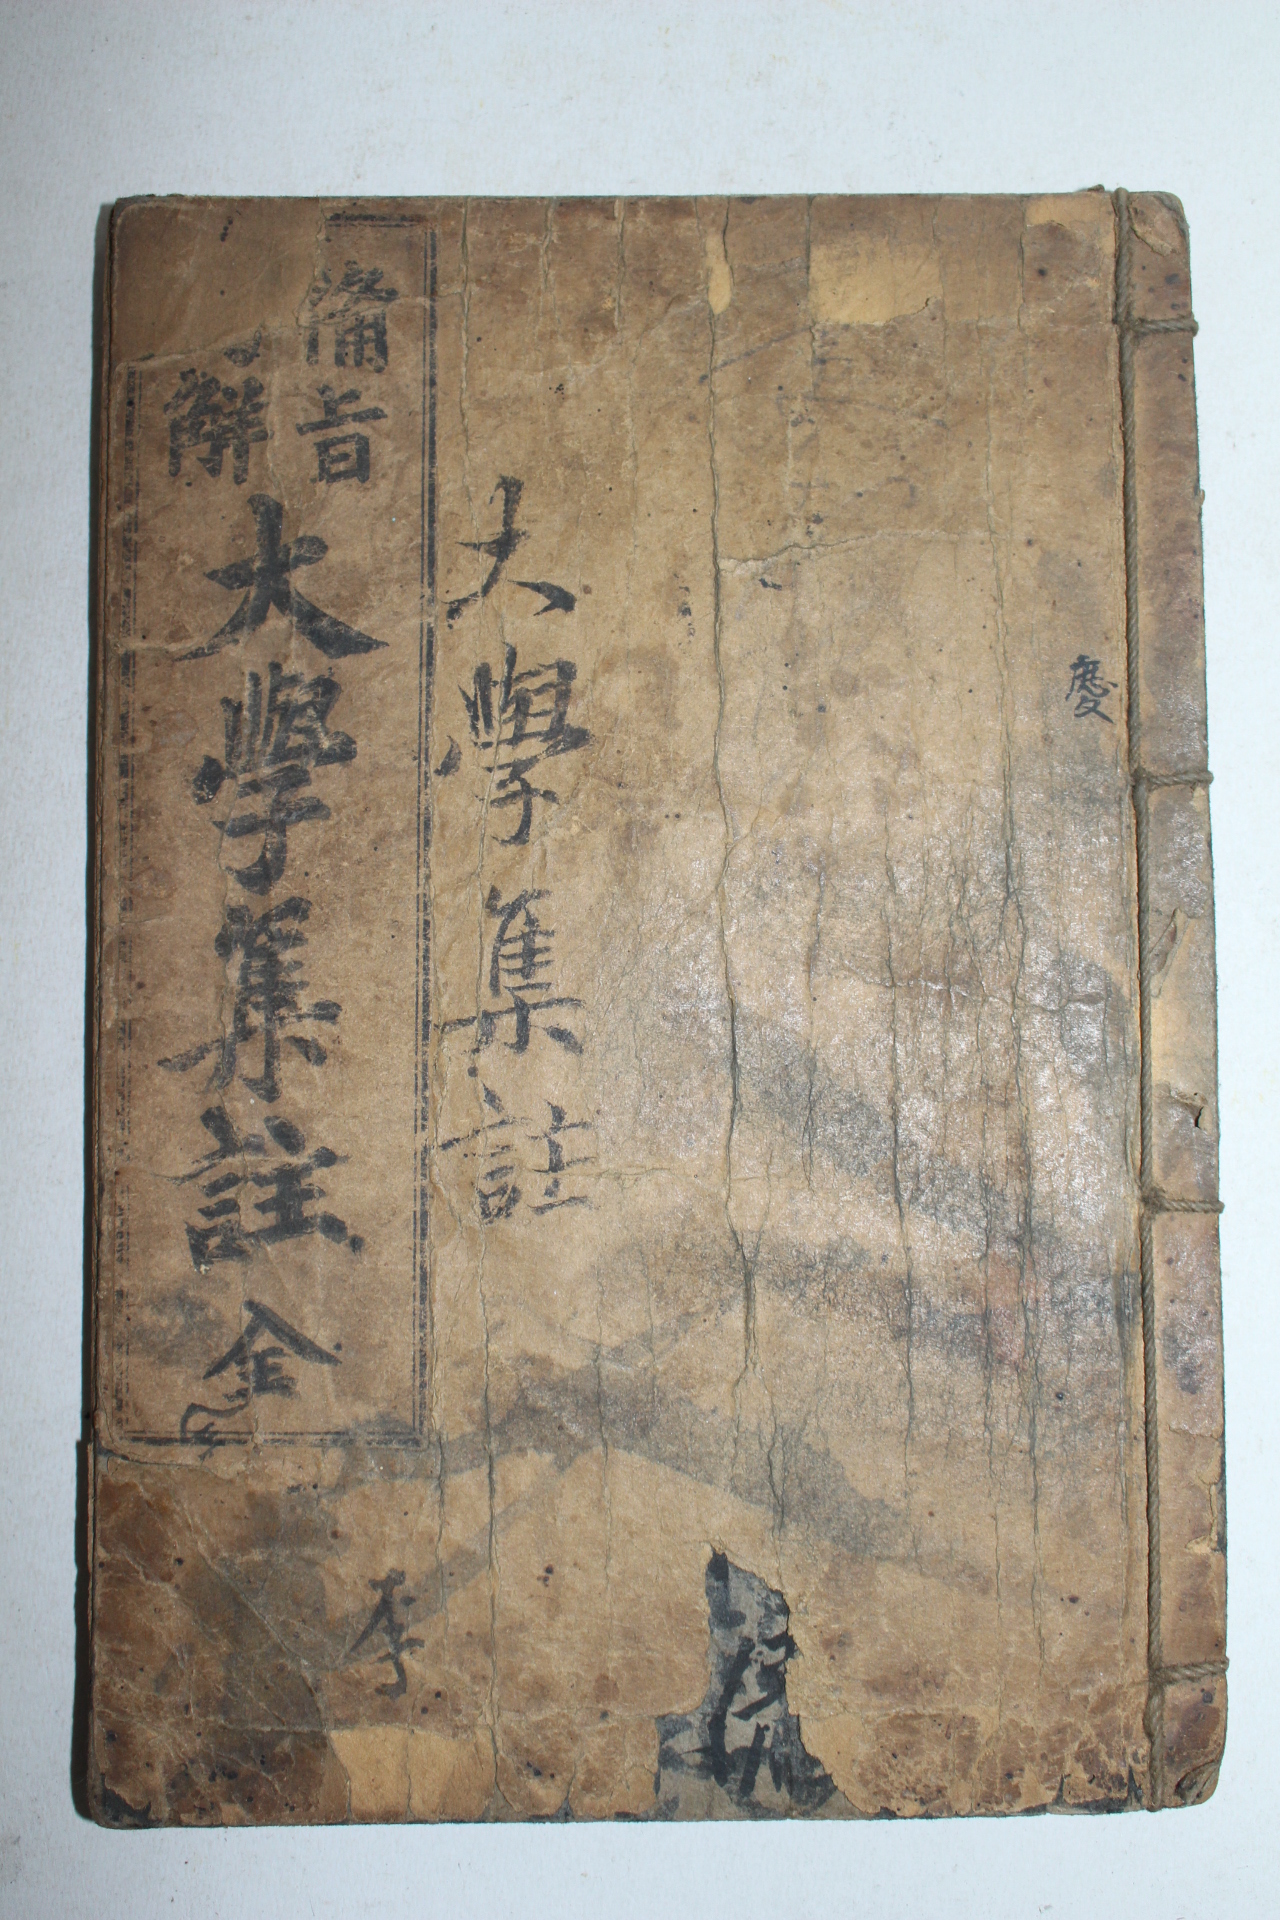 慶
大學集註
備旨
解
大學集註 全
李